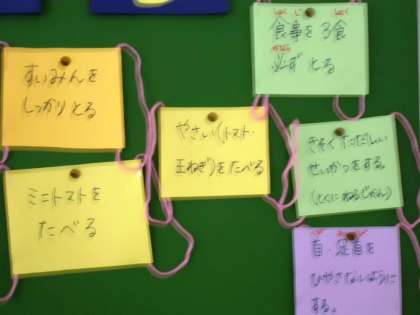 すいみんを
しっかりとる
ミニトマトを
たべる
やさい(トマト・
玉ねぎ)をたべる
しょく じ しょく
食事を3食
かなら
必ず とる
きそくただしい
せいかつをする
(とくに ねるじかん)
首・足首を
ひやさないように
する。